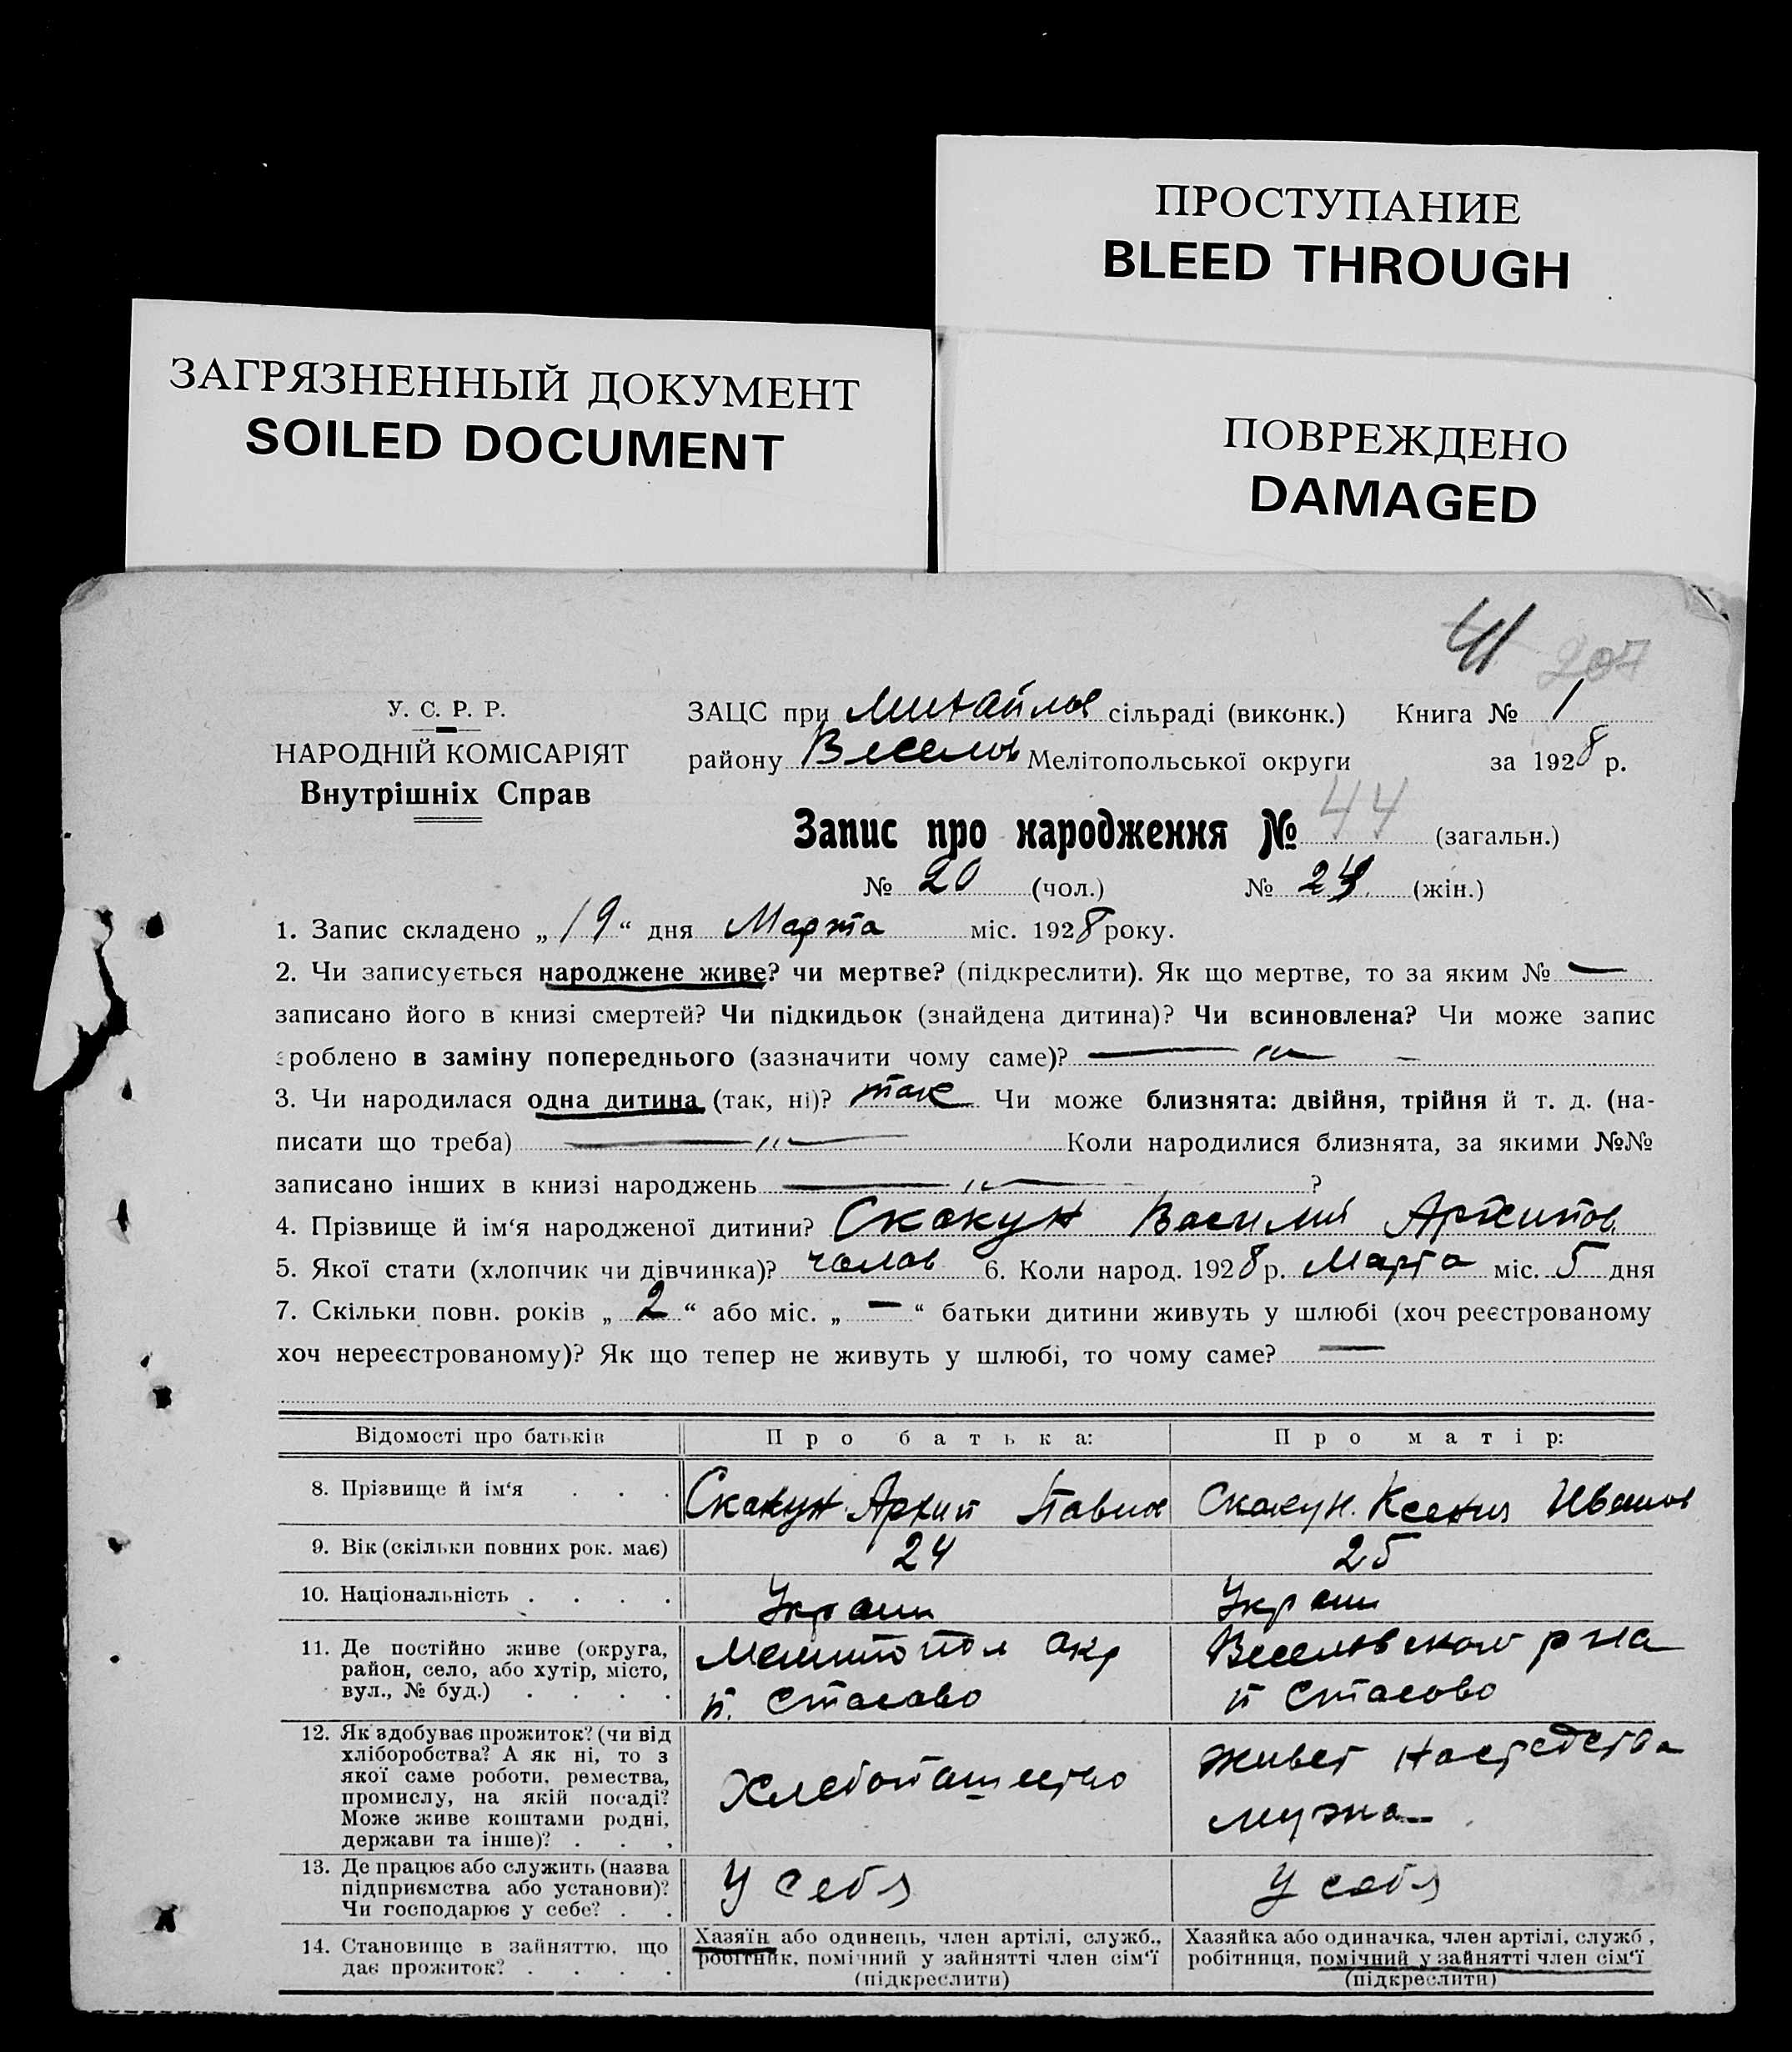 ПРОСТУПАНИЕ
BLEED THROUGH
ЗАГРЯЗНЕННЫЙ ДОКУМЕНТ
SOILED DOCUMENT
ПОВРЕЖДЕНО
DAMAGED
41 207
У. С. Р. Р.
НАРОДНІЙ КОМІСАРІЯТ
Внутрішніх Справ
ЗАЦС при Михайлов сільраді (виконк.) Книга № 1
району Веселов Мелітопольської округи за 1928 р.
Запис про народження № 44 (загальн.)
№ 20 (чол.) № 24 (жін.)
1. Запис складено „19“ дня Марта міс. 1928 року.
2. Чи записується народжене живе? чи мертве? (підкреслити). Як що мертве, то за яким № —
записано його в книзі смертей? Чи підкидьок (знайдена дитина)? Чи всиновлена? Чи може запис
зроблено в заміну попереднього (зазначити чому саме)? — „ —
3. Чи народилася одна дитина (так, ні)? так Чи може близнята: двійня, трійня й т. д. (на-
писати що треба) — „ — Коли народилися близнята, за якими №№
записано інших в книзі народжень — „ — ?
4. Прізвище й ім‘я народженої дитини? Скакун Василий Архипов
5. Якої стати (хлопчик чи дівчинка)? чолов 6. Коли народ. 1928 р. Марта міс. 5 дня
7. Скільки повн. років „ 2 “ або міс. „ — “ батьки дитини живуть у шлюбі (хоч реєстрованому
хоч нереєстрованому)? Як що тепер не живуть у шлюбі, то чому саме? —
Відомості про батьків Про батька: Про матір:
8. Прізвище й ім‘я . . . Скакун Архип Павлов Скакун Ксения Иванов
9. Вік (скільки повних рок. має) 24 25
10. Національність . . . . Украин Украин
11. Де постійно живе (округа,
район, село, або хутір, місто,
вул., № буд.) . . . .
Мелитопол окр
п. Стасово
Веселовского р на
п Стасово
12. Як здобуває прожиток? (чи від
хліборобства? А як ні, то з
якої саме роботи, ремества,
промислу, на якій посаді?
Може живе коштами родні,
держави та інше)? . . .
Хлебопашество
живет на средства
мужа
13. Де працює або служить (назва
підприємства або установи)?
Чи господарює у себе? . .
У себя
У себя
14. Становище в зайняттю, що
дає прожиток? . . . .
Хазяїн або одинець, член артілі, служб.,
робітник, помічний у зайнятті член сім‘ї
(підкреслити)
Хазяйка або одиначка, член артілі, служб,
робітниця, помічний у зайнятті член сім‘ї
(підкреслити)